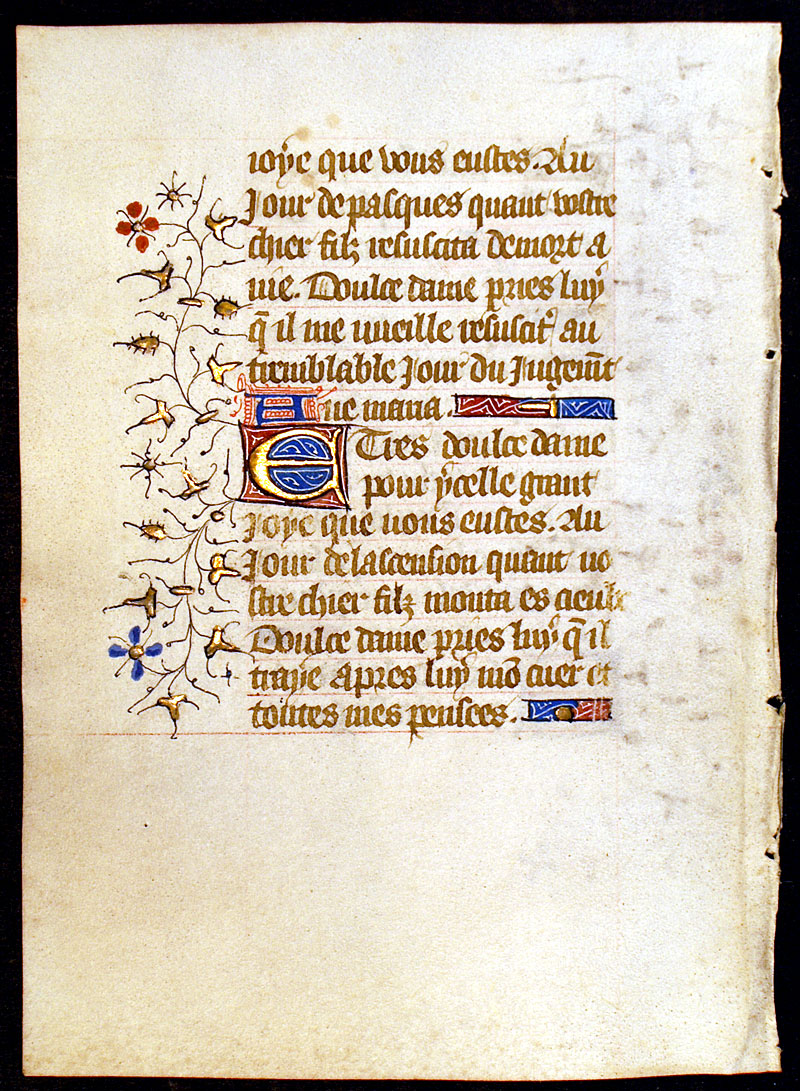 ioye que vous eustes. Au
Jour de pasques quant vostre
chier filz resuscita de mort a
vie. Doulce dame pries luy
q̄ il me vueille resuscit᷑ au
tremblable Jour du Jugem̄t
Aue maria.
E Tres doulce dame
pour ycelle grant
Joye que vous eustes. Au
Jour delascension quant vo
stre chier filz monta es cieulx
Doulce dame pries luy q̄ il
traye apres luy mō cuer et
toutes mes pensees.